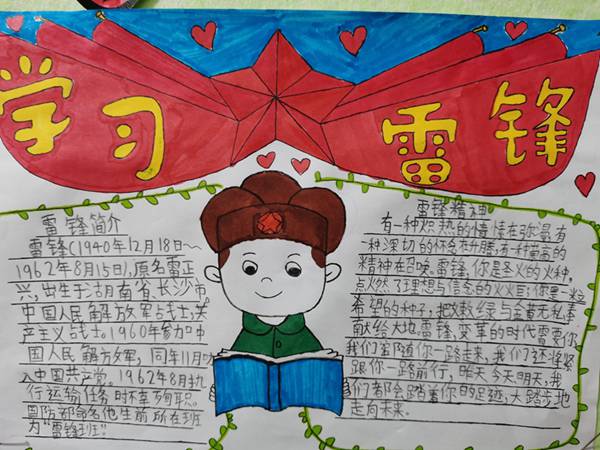 学习
雷锋
雷锋简介
雷锋(1940年12月18日~
1962年8月15日),原名雷正
兴,出生于湖南省长沙市,
中国人民解放军战士,共
产主义战士。1960年参加中
国人民解放军,同年11月
入中国共产党。1962年8月
行运输任务时不幸殉职。
国防部命名他生前所在班
为“雷锋班”
雷锋精神
有一种炽热的情怀在弥漫,有
一种深切的怀念在升腾,有一种
精神在召唤。雷锋,你是圣火的火种,
点燃了理想与信念的火炬;你是一粒
希望的种子,把
献给大地。雷锋,变革的时代需要你
我们
跟你一路前行,昨天今天明天,我
们都会踏着你的足迹,大踏步地
走向未来。